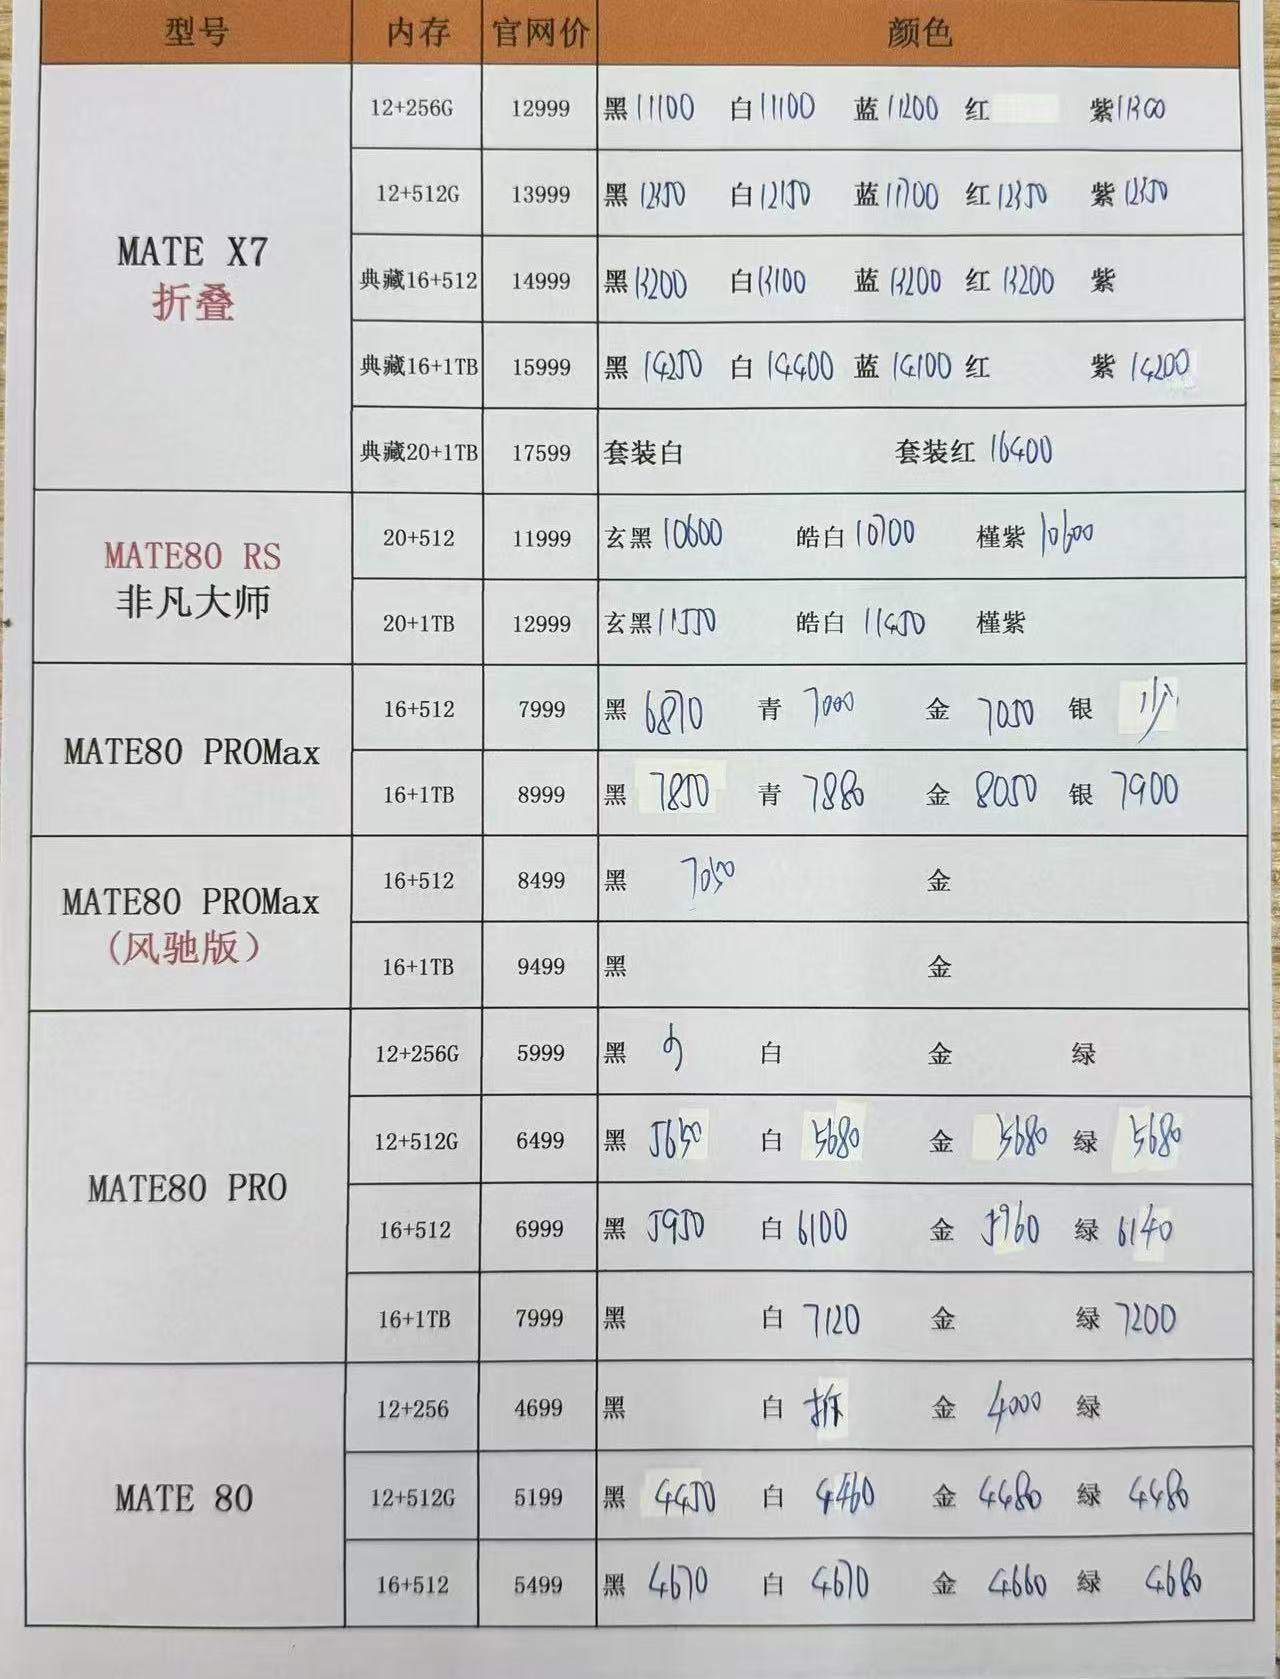 型号 内存 官网价 颜色
MATE X7
折叠
12+256G 12999 黑11100 白11100 蓝11200 红 紫11300
12+512G 13999 黑12350 白12150 蓝11700 红12350 紫12350
典藏16+512 14999 黑13200 白13100 蓝13200 红13200 紫
典藏16+1TB 15999 黑14250 白14400 蓝14100 红 紫14200
典藏20+1TB 17599 套装白 套装红16400
MATE80 RS
非凡大师
20+512 11999 玄黑10600 皓白10700 槿紫10600
20+1TB 12999 玄黑11550 皓白11450 槿紫
MATE80 PROMax
16+512 7999 黑6870 青7000 金7050 银少
16+1TB 8999 黑7850 青7880 金8050 银7900
MATE80 PROMax
(风驰版)
16+512 8499 黑7050 金
16+1TB 9499 黑 金
MATE80 PRO
12+256G 5999 黑 白 金 绿
12+512G 6499 黑5650 白5680 金5680 绿5680
16+512 6999 黑5950 白6100 金5960 绿6140
16+1TB 7999 黑 白7120 金 绿7200
MATE 80
12+256 4699 黑 白拆 金4000 绿
12+512G 5199 黑4450 白4460 金4480 绿4480
16+512 5499 黑4670 白4670 金4660 绿4680